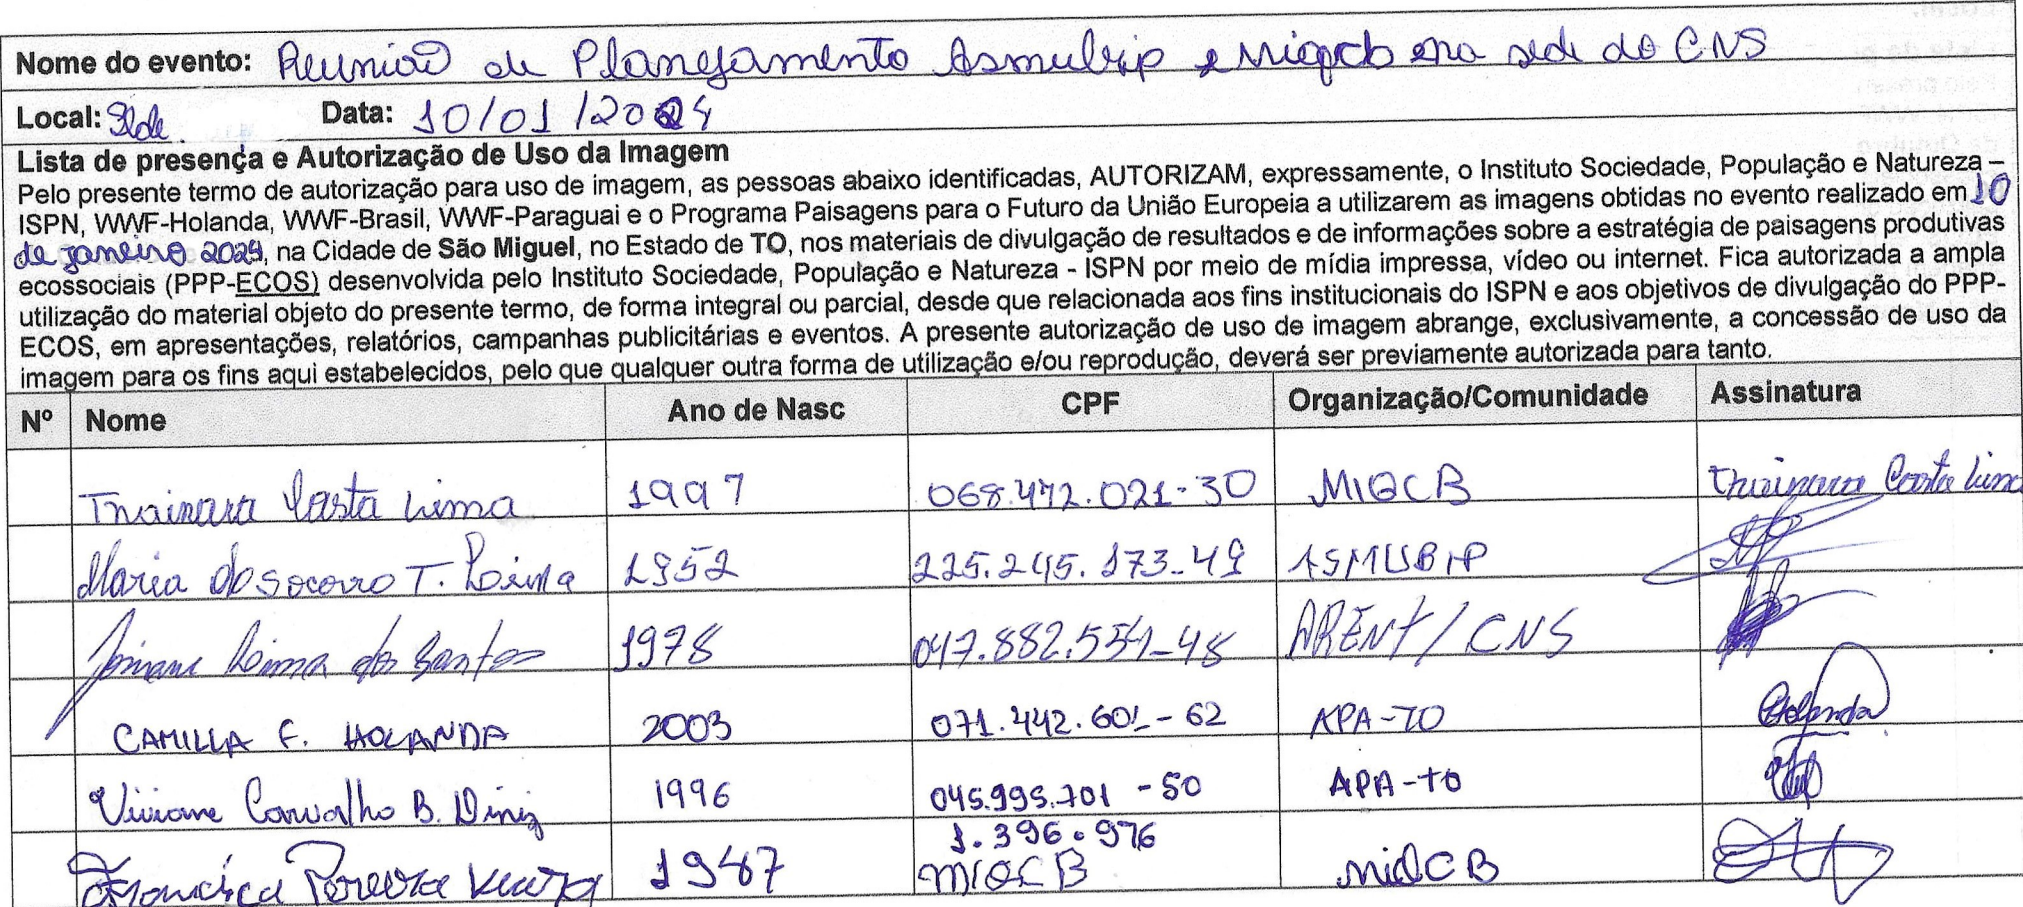 Nome do evento: Reunião de Planejamento Asmubip e Miqcb na sede do CNS
Local: Sede. Data: 10/01/2024
Lista de presença e Autorização de Uso da Imagem
Pelo presente termo de autorização para uso de imagem, as pessoas abaixo identificadas, AUTORIZAM, expressamente, o Instituto Sociedade, População e Natureza –
ISPN, WWF-Holanda, WWF-Brasil, WWF-Paraguai e o Programa Paisagens para o Futuro da União Europeia a utilizarem as imagens obtidas no evento realizado em 10
de janeiro 2024, na Cidade de São Miguel, no Estado de TO, nos materiais de divulgação de resultados e de informações sobre a estratégia de paisagens produtivas
ecossociais (PPP-ECOS) desenvolvida pelo Instituto Sociedade, População e Natureza - ISPN por meio de mídia impressa, vídeo ou internet. Fica autorizada a ampla
utilização do material objeto do presente termo, de forma integral ou parcial, desde que relacionada aos fins institucionais do ISPN e aos objetivos de divulgação do PPP-
ECOS, em apresentações, relatórios, campanhas publicitárias e eventos. A presente autorização de uso de imagem abrange, exclusivamente, a concessão de uso da
imagem para os fins aqui estabelecidos, pelo que qualquer outra forma de utilização e/ou reprodução, deverá ser previamente autorizada para tanto.
Nº Nome Ano de Nasc CPF Organização/Comunidade Assinatura
Thainara Costa Lima 1997 068.472.021-30 MIQCB Thainara Costa Lima
Maria do Socorro T. Lima 1952 225.245.173-49 ASMUBIP
Lima dos Santos 1978 047.882.554-48 ARENT/CNS
CAMILLA F. HOLANDA 2003 071.442.601-62 APA-TO Holanda
Viviane Carvalho B. Diniz 1996 045.995.701-50 APA-TO
1.396.976
Francisca Pereira 1947 MIQCB MIQCB